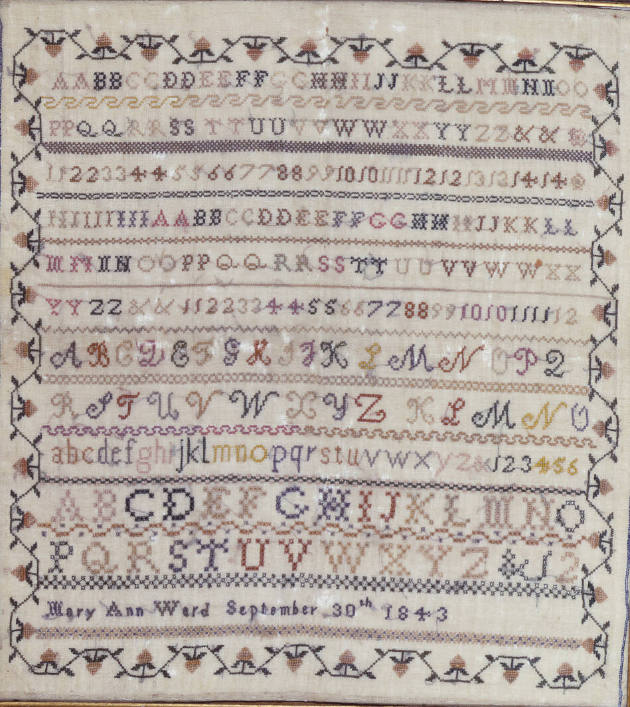 AABBCCDDEEFFGGHHIIJJKKLLMMNNOO
PPQQRRSSTTUUVVWWXXYYZZ&&
11223344556677889910101111121213131414
AABBCCDDEEFFGGHHIIJJKKLL
MMNNOOPPQQRRSSTTUUVVWWXX
YYZZ&&1122334455667788991010111112
ABCDEFGHIJKLMNOPQ
RSTUVWXYZ KLMNO
abcdefghijklmnopqrstuvwxyz&123456
ABCDEFGHIJKLMNO
PQRSTUVWXYZ&12
Mary Ann Ward September 30th 1843